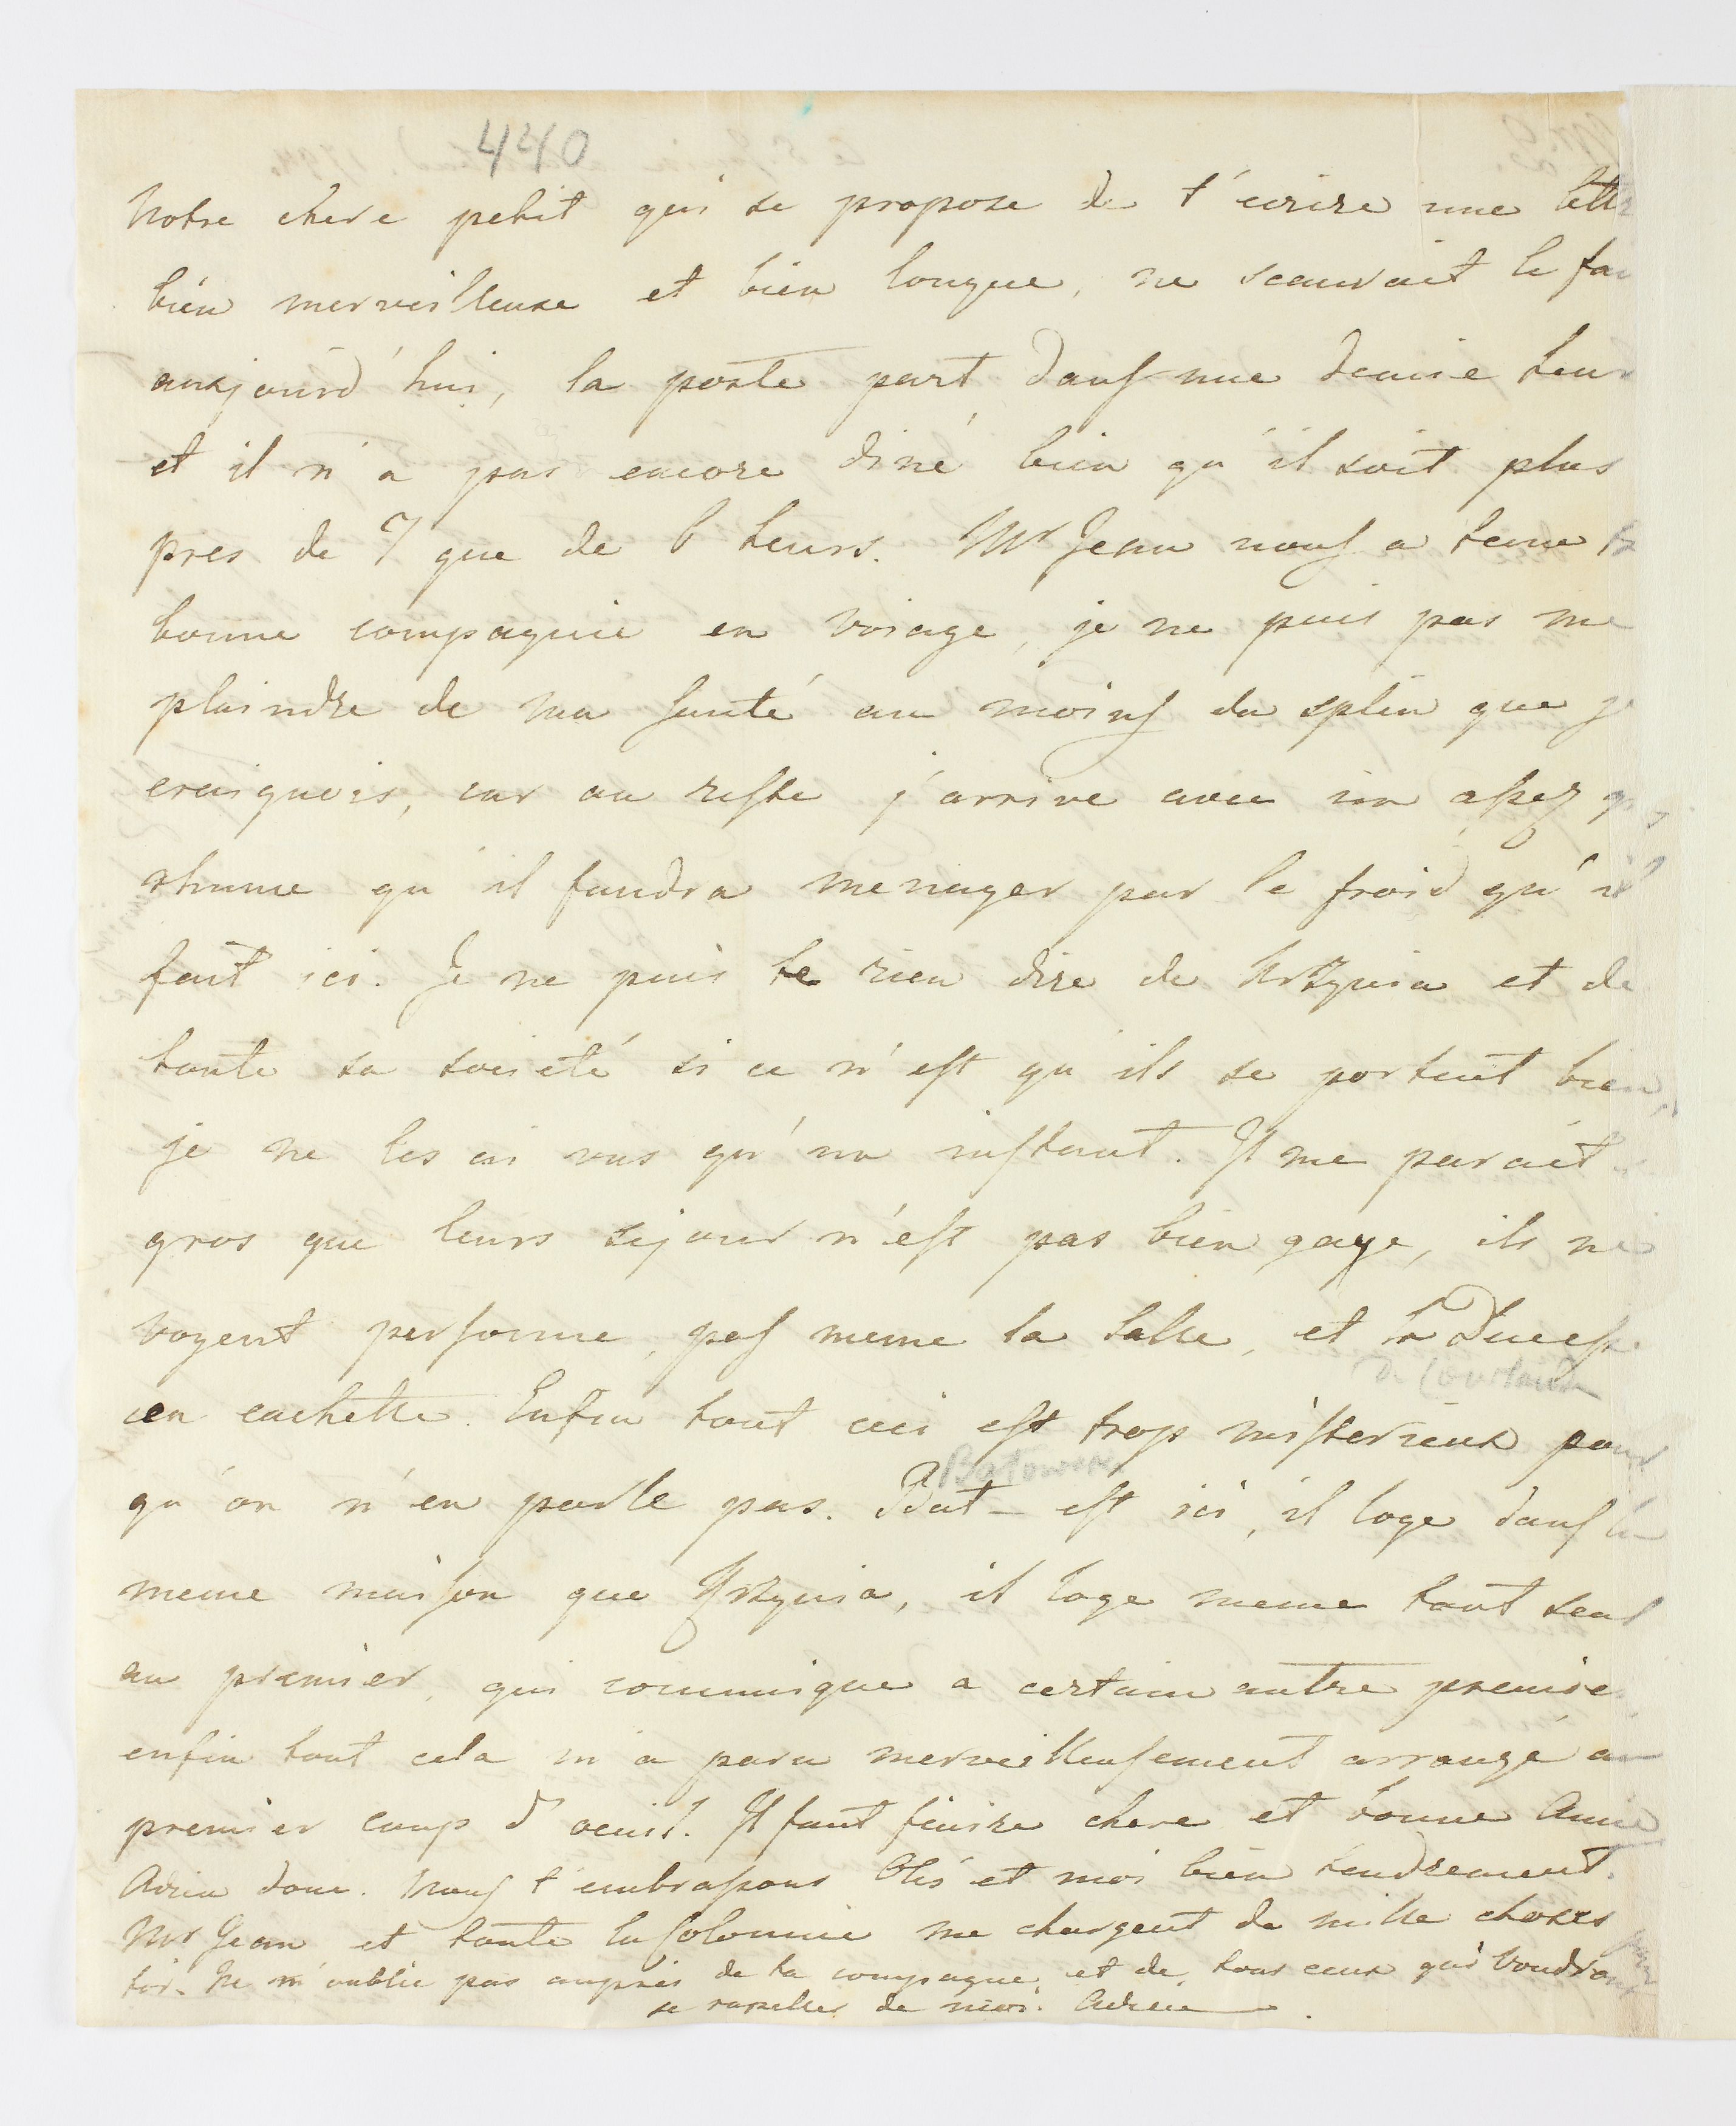 440
Notre chere petit qui se propose de t'ecrire une lettr
bien merveilleuse et bien longue, ne scaurait le fai
auxjourd'hui, la poste part dans une demie heur
et il n'a pas encore diné bien qu'il soit plus
pres de 7 que de 6 heurs. Mr Jean nous a tenu
bonne compagnie en voiage, je ne puis pas me
plaindre de ma santé au moins du splin que je
craignois, car au reste j'arrive avec un assez
rhume qu'il faudra menager par le froid qu'il
fait ici. Je ne puis te rien dire de et de
toute sa societé si ce n'est qu'ils se portent bien,
je ne les ai vus qu'un instant. Il me parait
gros que leurs sejour n'est pas bien gaye, ils ne
voyent personne, pas meme la Salle, et la Duchess
de Courlande
en cachette. Enfin tout ceci est trop misterieux pour
Batowski
qu'on n'en parle pas. Bat— est ici, il loge dans la
meme maison que , il loge meme tout seul
au premier, qui comunique a certain autre premier
enfin tout cela m'a paru merveilleusement arrangé au
premier coup d'oeuil. Il faut finire chere et bonne Amie
Adieu donc. Nous t'embrassons et moi bien tendrement.
Mr Jean et toute la Colonnie me chargent de mille choses pour
toi. Ne m'oublie pas aupres de ta compagne et de tous ceux qui voudront
se rappeller de moi. Adieu.